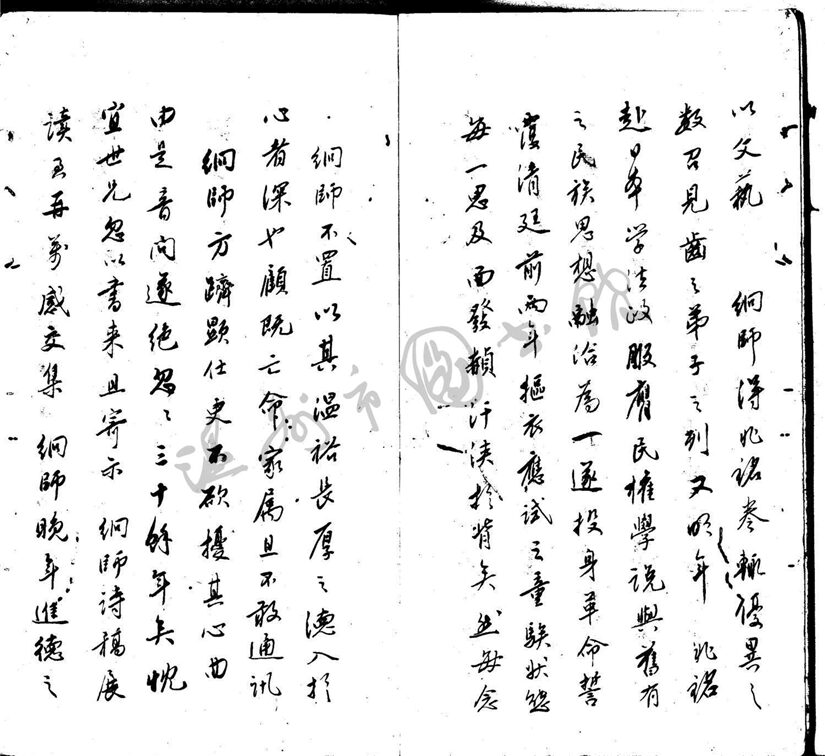 以文藝 絅師得兆銘卷輒優異之
數召見齒之弟子之列又明年 兆銘
赴日本學法政服膺民權學說與舊有
之民族思想融洽為一遂投身革命誓
覆清廷前兩年摳衣應試之童騃狀態
每一思及面發赬汗浹於背矣然每念
絅師不置以其溫裕長厚之德入於
心者深也顧既亡命家屬且不敢通訊
絅師方躋顯仕更不欲擾其心曲
由是音問遂絕忽々三十餘年矣忱
宜世兄忽以書來且寄示 絅師詩稿展
讀至再萬感交集 絅師晚年進德之
溫州市圖書館